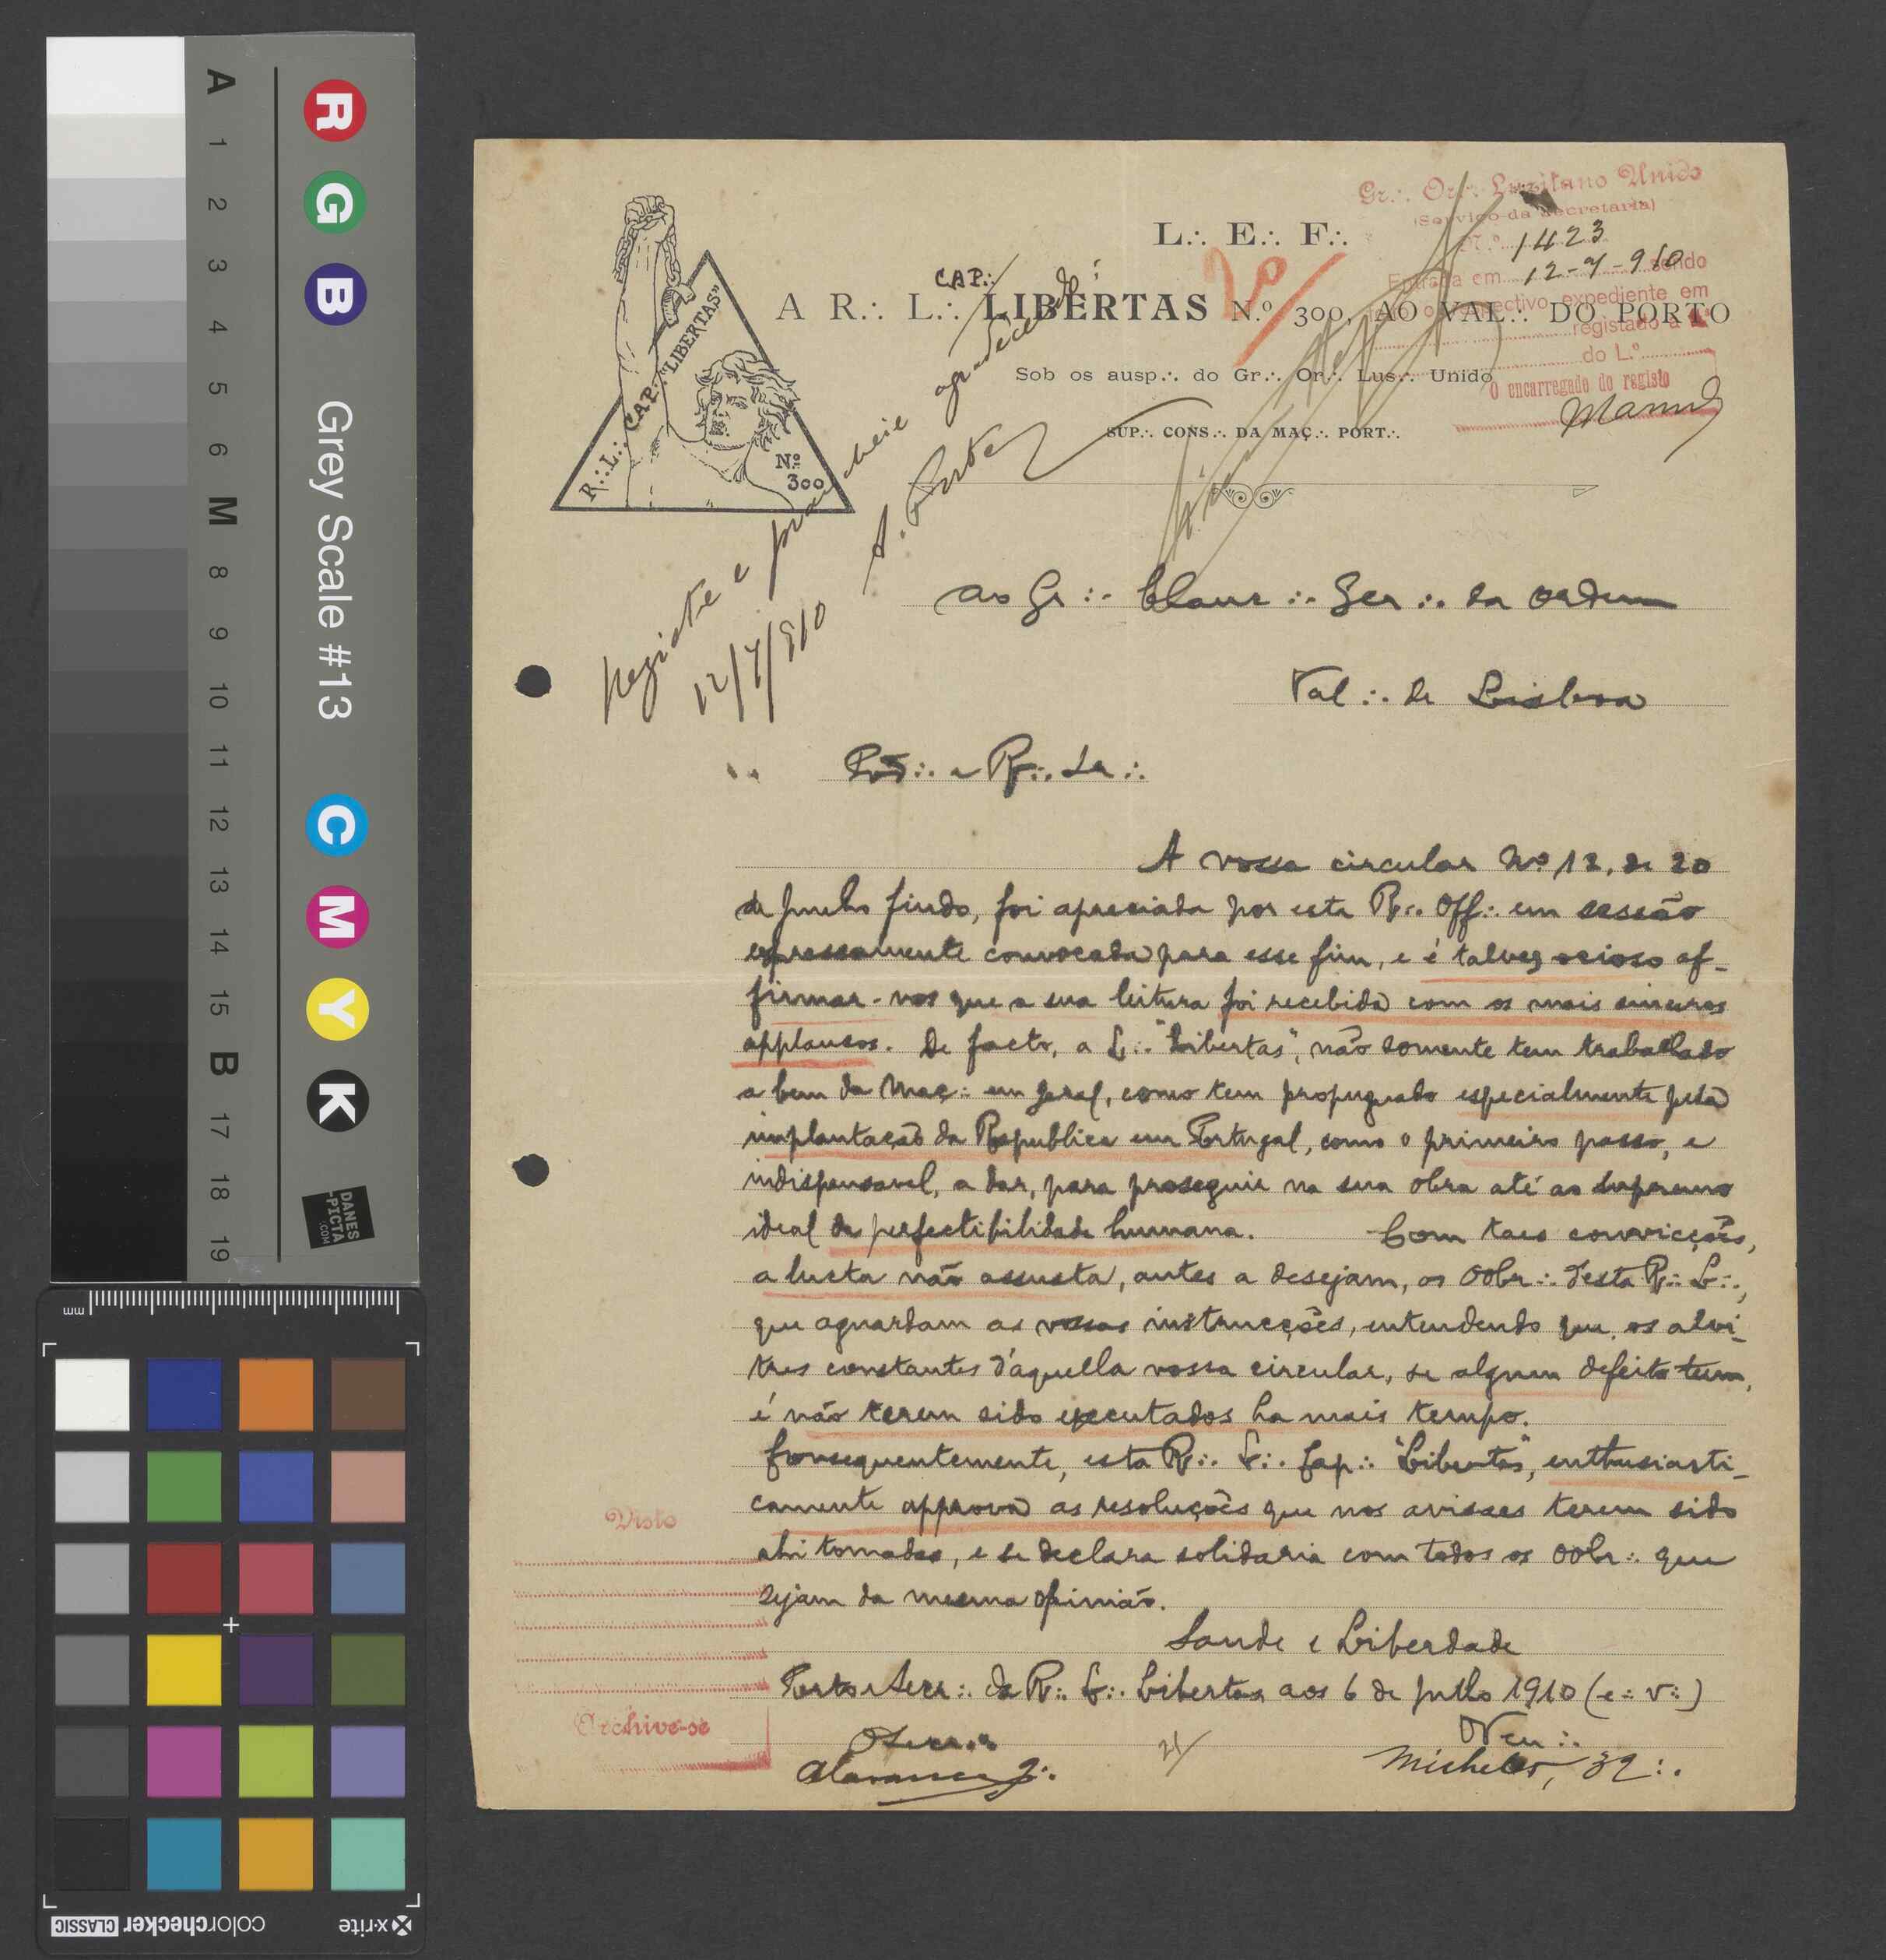 L∴ E∴ F∴
CAP∴
A R∴ L∴ LIBERTAS N.º 300, AO VAL∴ DO PORTO
Sob os ausp∴ do Gr∴ Or∴ Lus∴ Unido
SUP∴ CONS∴ DA MAÇ∴ PORT∴
R∴ L∴ CAP∴ "LIBERTAS"
Nº 300
Gr∴ Or∴ Luzitano Unido
(Serviço da Secretaria)
N.º 1423
Entrada em 12-7-910 sendo
o respectivo expediente em
registado a
do L.º
O encarregado do registo
2º
Registe e agradecendo
12/7/910
Ao Gr∴ Ger∴ da Ordem
Val∴ de Lisboa
A vossa circular Nº 12, de 20
de Junho findo, foi apreciada por esta R∴ Off∴ em sessão
expressamente convocada para esse fim, e é talvez ocioso af-
firmar-vos que a sua leitura foi recebida com os mais sinceros
applausos. De facto, a L∴ "Libertas", não somente tem trabalhado
a bem da Maç∴ em geral, como tem propugnado especialmente pela
implantação da Republica em Portugal, como o primeiro passo, e
indispensavel, a dar, para proseguir na sua obra até ao supremo
ideal da perfectibilidade humana. Com taes convicções,
a lucta não assusta, antes a desejam, os OObr∴ desta R∴ L∴,
que aguardam as vossas instrucções, entendendo que os alvi-
tres constantes d'aquella vossa circular, se algum defeito teem,
é não terem sido executados ha mais tempo.
Consequentemente, esta R∴ L∴ Cap∴ "Libertas", enthusiasti-
camente approva as resoluções que nos avisaes terem sido
ahi tomadas, e se declara solidaria com todos os OObr∴ que
sejam da mesma opinião.
Saude e Liberdade
Porto e Secr∴ da R∴ L∴ Libertas aos 6 de Julho 1910 (e∴ v∴)
O Secr∴
O Ven∴
Michelet, 32∴
Visto
Archive-se
A
1
2
3
4
5
6
M
8
9
10
11
12
13
14
15
B
17
18
19
R
G
B
Grey Scale #13
C
M
Y
K
DANES
-PICTA
.COM
mm
x-rite
colorchecker CLASSIC